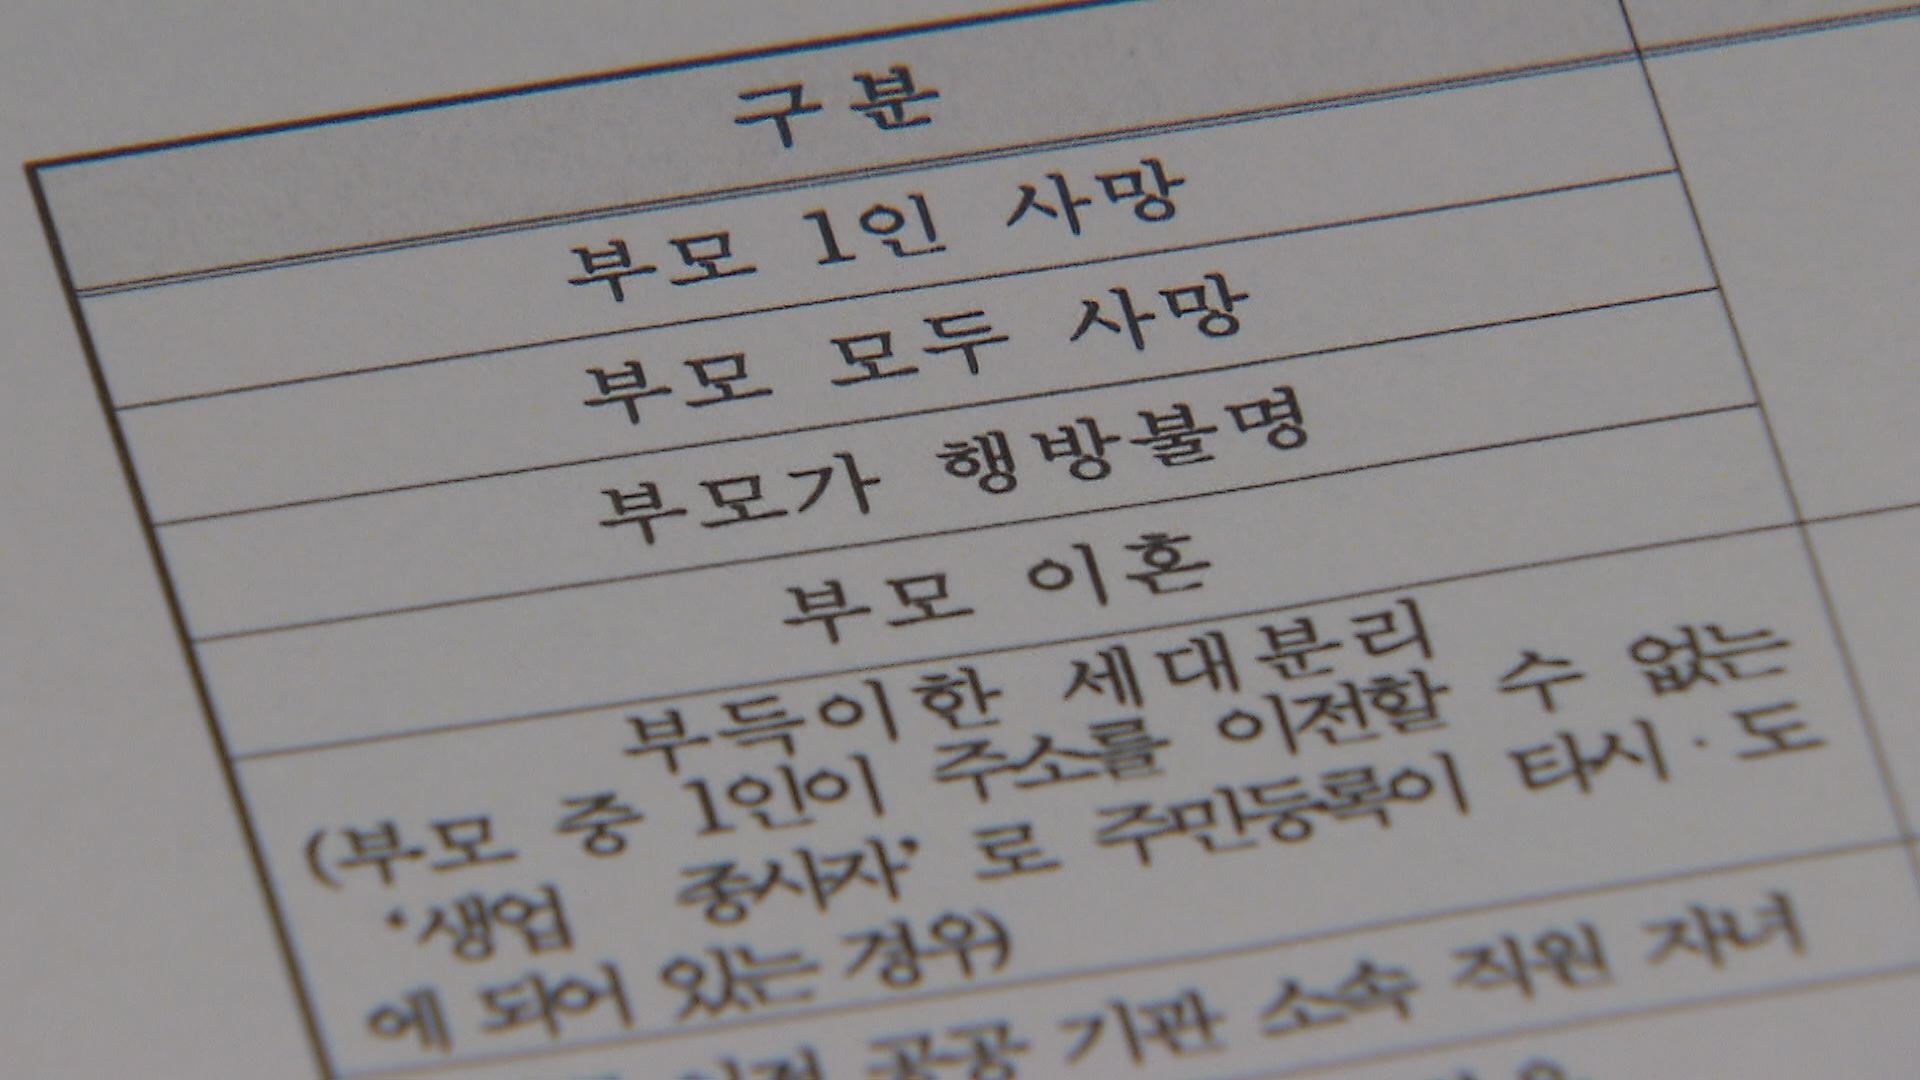 구분
부모 1인 사망
부모 모두 사망
부모가 행방불명
부모 이혼
부득이한 세대분리
(부모 중 1인이 주소를 이전할 수 없는
‘생업 종사자’로 주민등록이 타시·도
에 되어 있는 경우)
이전 공공 기관 소속 직원 자녀